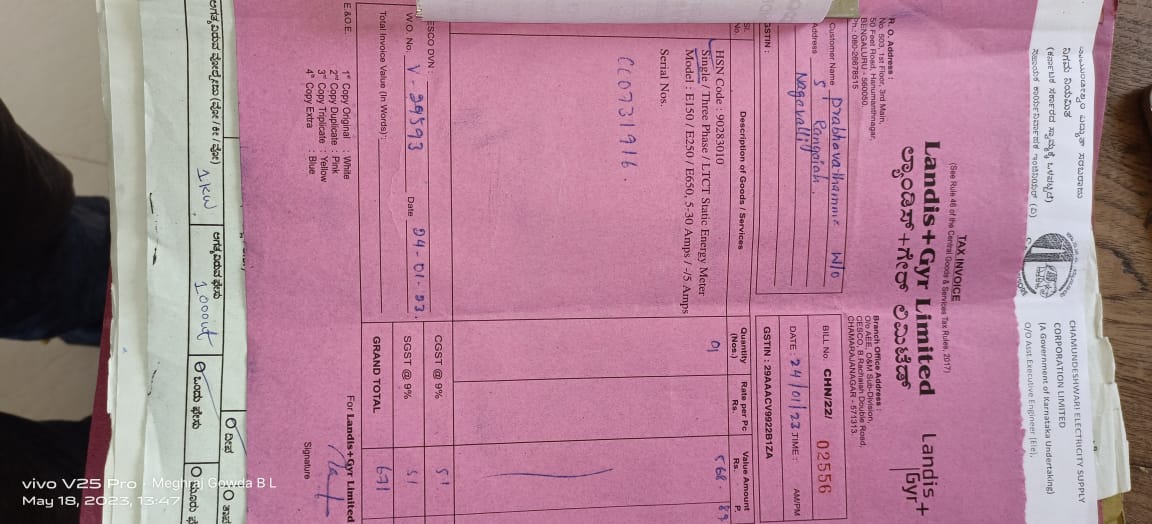 ಚಾಮುಂಡೇಶ್ವರಿ ವಿದ್ಯುತ್ ಸರಬರಾಜು
ನಿಗಮ ನಿಯಮಿತ
(ಕರ್ನಾಟಕ ಸರ್ಕಾರದ ಸ್ವಾಮ್ಯಕ್ಕೆ ಒಳಪಟ್ಟಿದೆ)
CHAMUNDESHWARI ELECTRICITY SUPPLY
CORPORATION LIMITED
(A Government of Karnataka Undertaking)
O/O Asst.Executive Engineer (Ele),
TAX INVOICE
(See Rule 46 of the Central Goods & Services Tax Rules, 2017)
Landis+Gyr Limited
ಲ್ಯಾಂಡಿಸ್+ಗೇರ್ ಲಿಮಿಟೆಡ್
Landis+
Gyr+
R. O. Address :
No. 503, 1st Floor, 3rd Main,
50 Feet Road, Hanumanthnagar,
BENGALURU - 560050.
Ph.: 080-26678515
Branch Office Address :
O/o AEE, O&M Sub-Division,
CESCO, B.Rachaiah Double Road,
CHAMARAJANAGAR - 571313.
Customer Name Prabhavathamma W/o
S Rangaiah.
Address Nagavalli
BILL No. CHN/22/ 02556
DATE : 24/01/23 TIME : AM/PM
GSTIN :
GSTIN : 29AAACV9922B1ZA
Sl. No. Description of Goods / Services Quantity (Nos.) Rate per Pc Rs. Value Amount Rs. P.
HSN Code : 90283010 01 568 89
Single / Three Phase / LTCT Static Energy Meter
Model : E150 / E250 / E650, 5-30 Amps / -/5 Amps
Serial Nos.
CC0731916.
CESCO DVN : CGST @ 9% 51
W.O. No. V-29593 Date 24-01-23. SGST @ 9% 51
Total Invoice Value (In Words): GRAND TOTAL 671
E.&O.E.
For Landis+Gyr Limited
1st Copy Original : White
2nd Copy Duplicate : Pink
3rd Copy Triplicate : Yellow
4th Copy Extra : Blue
Signature
1KW
ಒಂದು ಫೇಸು
ಮೂರು ಫೇ
ದೀಪ
vivo V25 Pro · Meghraj Gowda B L
May 18, 2023, 13:47